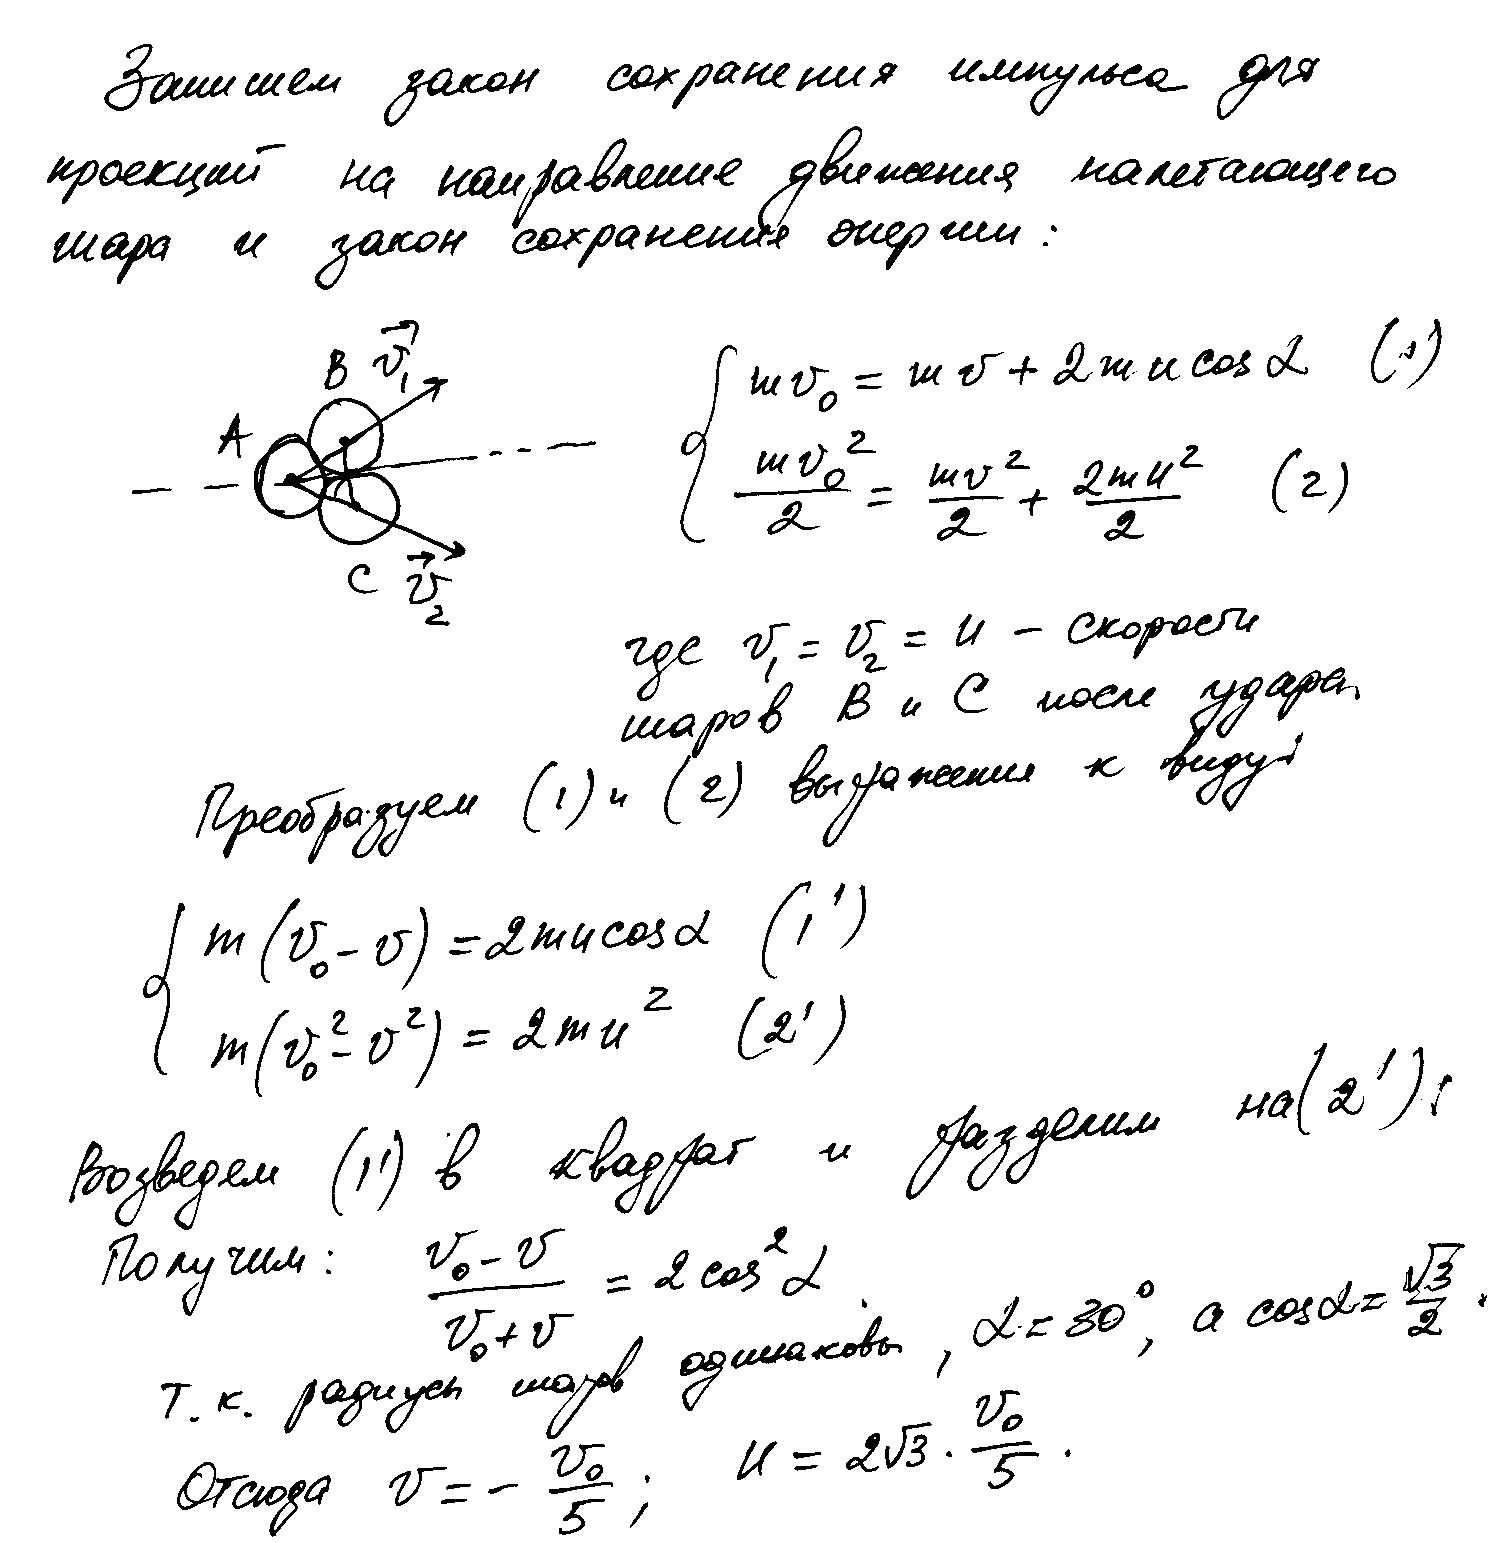 Запишем закон сохранения импульса для
проекций на направление движения налетающего
шара и закон сохранения энергии:
B v⃗₁
A
C v⃗₂
mv₀ = mv + 2mu cos α (1)
mv₀²/2 = mv²/2 + 2mu²/2 (2)
где v₁ = v₂ = u – скорости
шаров B и C после удара.
Преобразуем (1) и (2) выражения к виду:
m(v₀ - v) = 2mu cos α (1')
m(v₀² - v²) = 2mu² (2')
Возведем (1') в квадрат и разделим на (2'):
Получим: (v₀ - v)/(v₀ + v) = 2cos²α.
т.к. радиусы шаров одинаковы, α = 30°, а cos α = √3/2.
Отсюда v = - v₀/5; u = 2√3 · v₀/5.